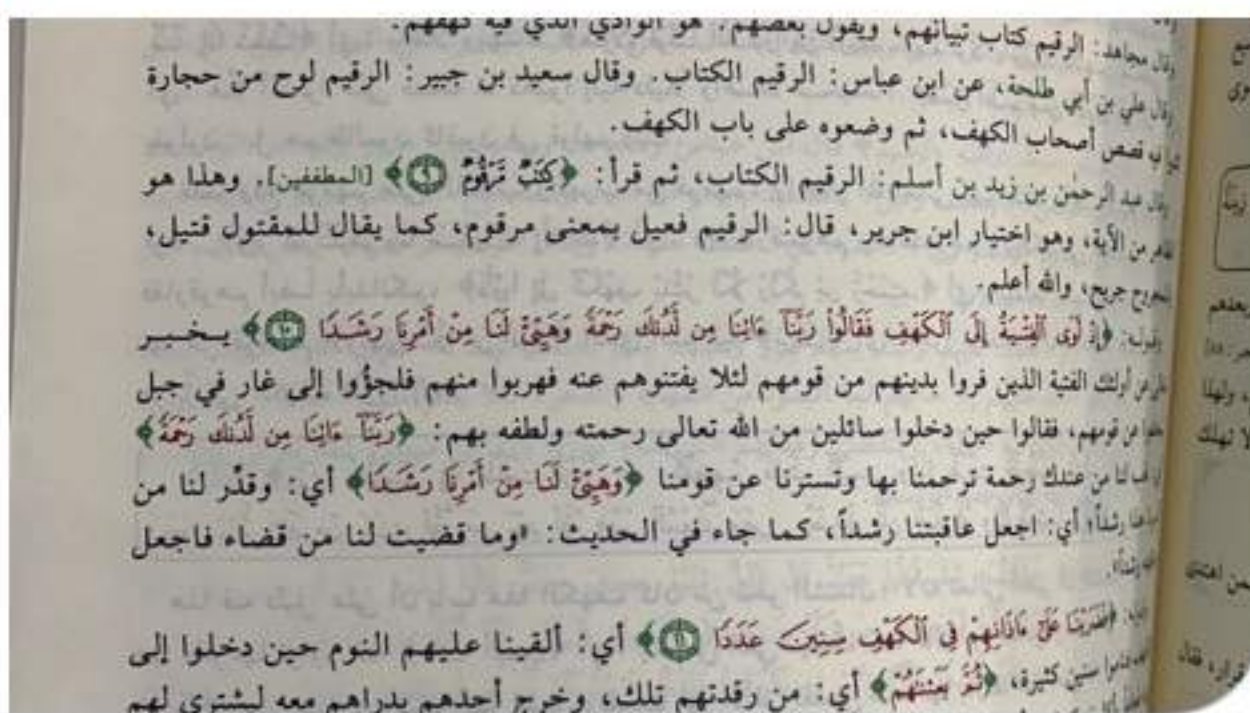 وقال مجاهد: الرقيم كتاب تبيانهم، ويقول بعضهم: هو الوادي الذي فيه كهفهم.
وقال علي بن أبي طلحة، عن ابن عباس: الرقيم الكتاب. وقال سعيد بن جبير: الرقيم لوح من حجارة
فيه قصص أصحاب الكهف، ثم وضعوه على باب الكهف.
وقال عبد الرحمٰن بن زيد بن أسلم: الرقيم الكتاب، ثم قرأ: ﴿كِتَٰبٌ مَّرْقُومٌ ٩﴾ [المطففين]. وهذا هو
الظاهر من الآية، وهو اختيار ابن جرير، قال: الرقيم فعيل بمعنى مرقوم، كما يقال للمقتول قتيل،
وللمجروح جريح، والله أعلم.
وقوله: ﴿إِذْ أَوَى ٱلْفِتْيَةُ إِلَى ٱلْكَهْفِ فَقَالُوا۟ رَبَّنَآ ءَاتِنَا مِن لَّدُنكَ رَحْمَةً وَهَيِّئْ لَنَا مِنْ أَمْرِنَا رَشَدًا ١٠﴾ يخبر
عن أولئك الفتية الذين فروا بدينهم من قومهم لئلا يفتنوهم عنه فهربوا منهم فلجؤوا إلى غار في جبل
من قومهم، فقالوا حين دخلوا سائلين من الله تعالى رحمته ولطفه بهم: ﴿رَبَّنَآ ءَاتِنَا مِن لَّدُنكَ رَحْمَةً﴾
لنا من عندك رحمة ترحمنا بها وتسترنا عن قومنا ﴿وَهَيِّئْ لَنَا مِنْ أَمْرِنَا رَشَدًا﴾ أي: وقدّر لنا من
رشداً؛ أي: اجعل عاقبتنا رشداً، كما جاء في الحديث: «وما قضيت لنا من قضاء فاجعل
رشداً».
﴿فَضَرَبْنَا عَلَىٰٓ ءَاذَانِهِمْ فِى ٱلْكَهْفِ سِنِينَ عَدَدًا ١١﴾ أي: ألقينا عليهم النوم حين دخلوا إلى
سنين كثيرة، ﴿ثُمَّ بَعَثْنَٰهُمْ﴾ أي: من رقدتهم تلك، وخرج أحدهم بدراهم معه ليشتري لهم